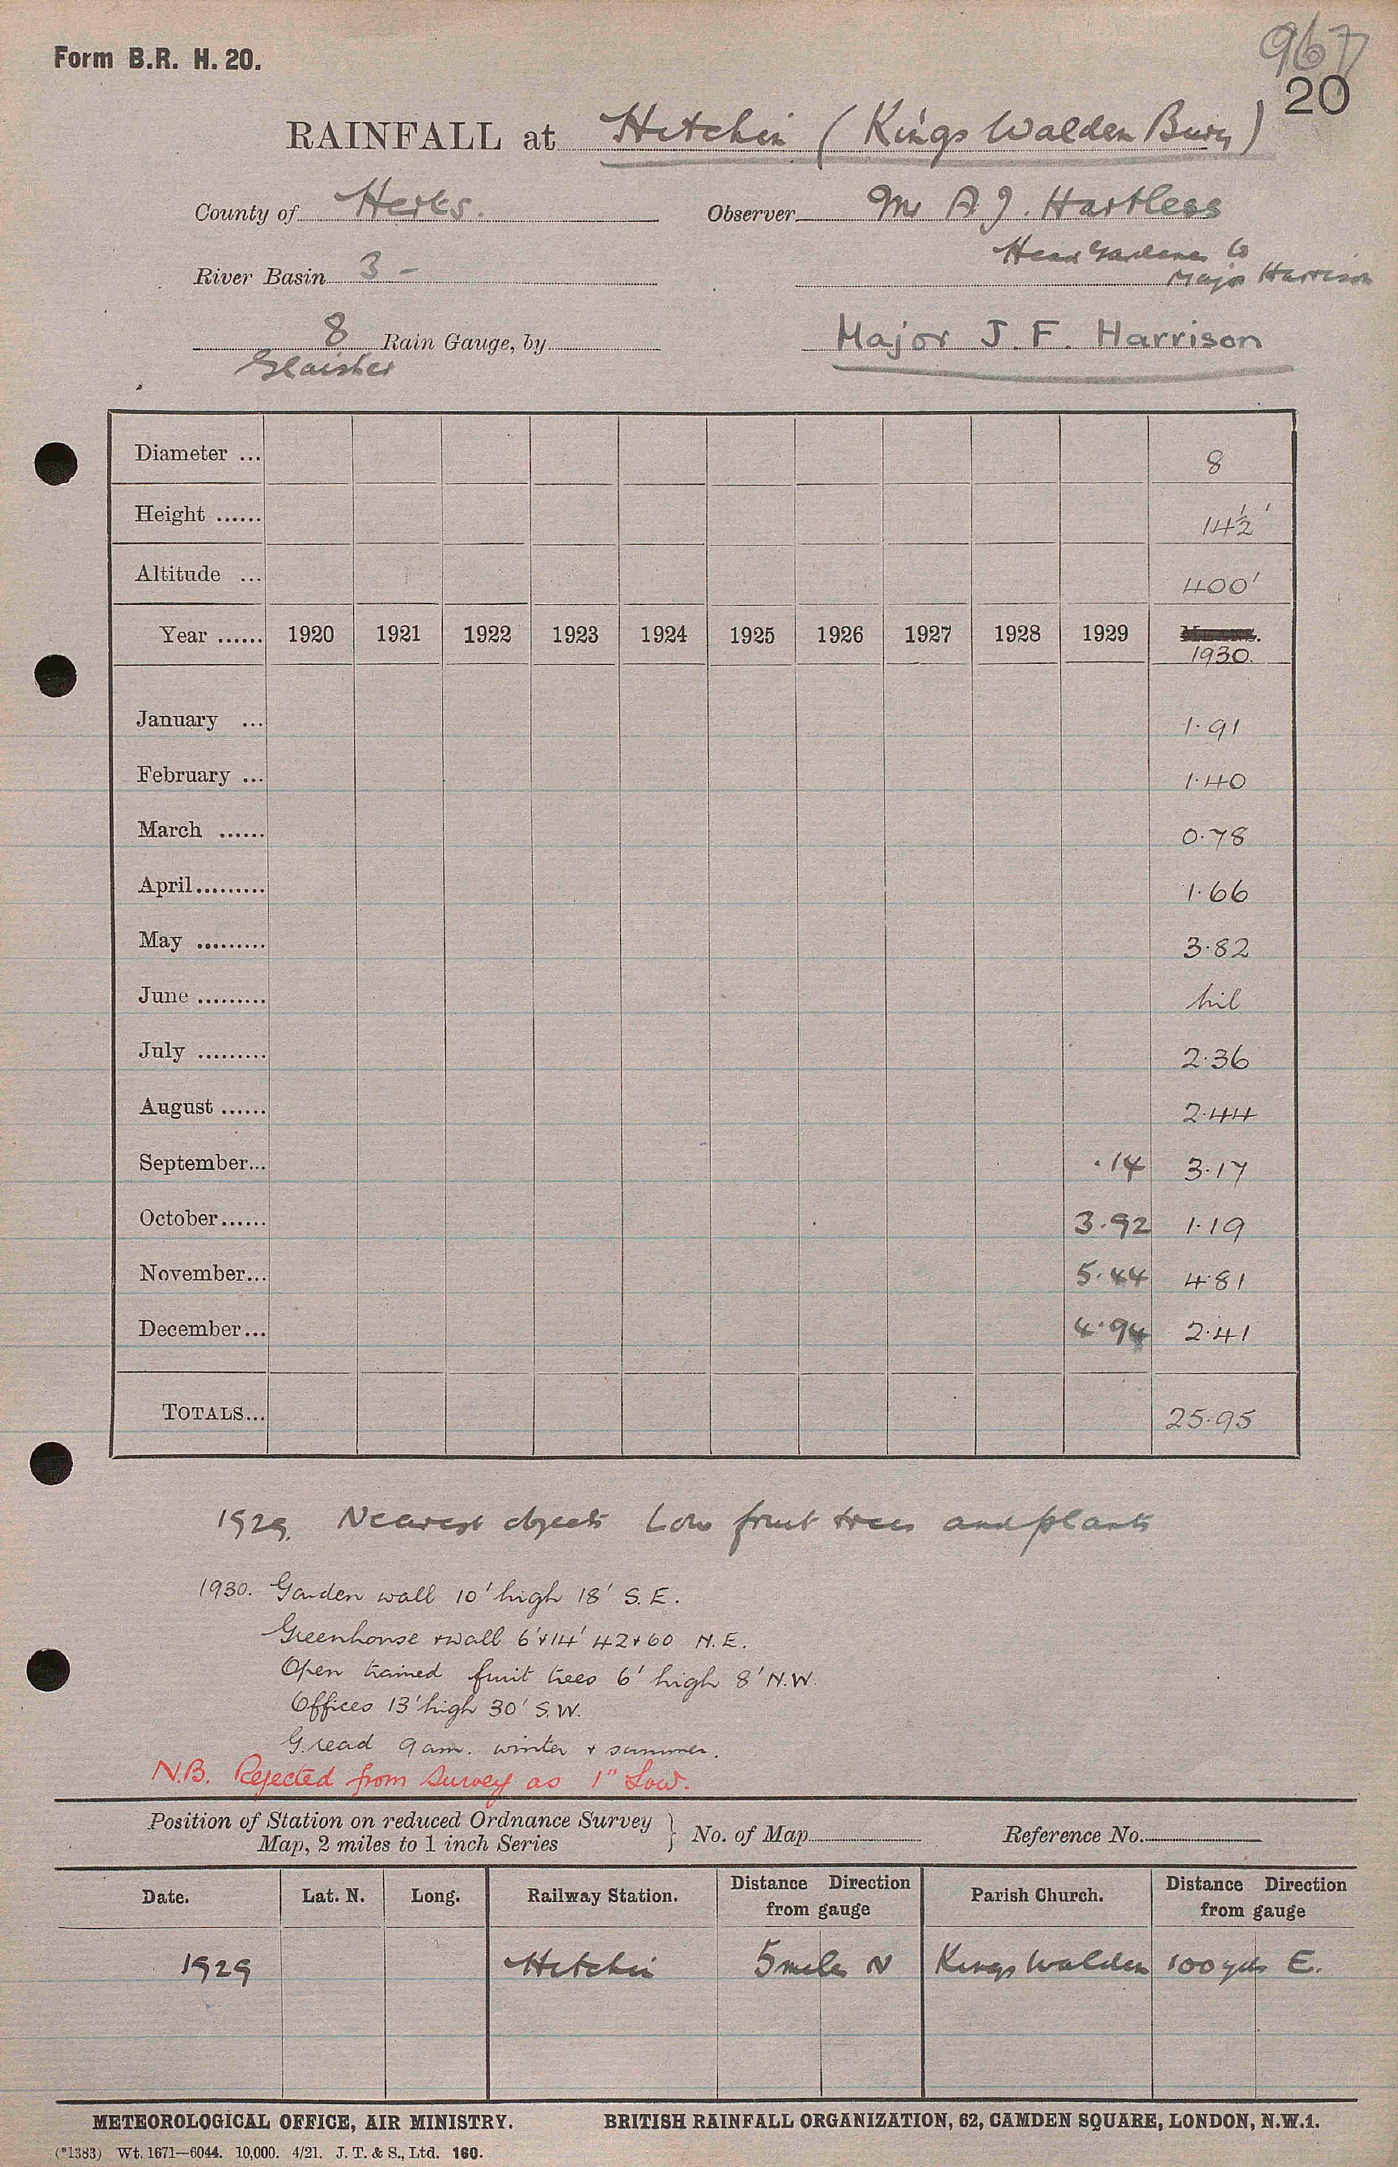 967
Form B.R. H. 20.
20
RAINFALL at Hitchin (Kings Walden Bury)
County of Herts. Observer Mr A. J. Hartless
Head Gardener to
River Basin 3 - Major Harrison
8 Rain Gauge, by Major J. F. Harrison
Glaisher
Diameter ... 8
Height ...... 14½'
Altitude ... 400'
Year ...... 1920 1921 1922 1923 1924 1925 1926 1927 1928 1929
1930.
January ... 1.91
February ... 1.40
March ...... 0.78
April......... 1.66
May ......... 3.82
June ......... nil
July ......... 2.36
August ...... 2.44
September... .14 3.17
October...... 3.92 1.19
November... 5.44 4.81
December... 4.94 2.41
TOTALS... 25.95
1929. Nearest objects Low fruit trees and plants
1930. Garden wall 10' high 18' S.E.
Greenhouse + wall 6' + 14' 42 + 60 N.E.
Open trained fruit trees 6' high 8' N.W.
Offices 13' high 30' S.W.
G. read 9 am. winter + summer.
N.B. Rejected from Survey as 1" Low.
Position of Station on reduced Ordnance Survey
Map, 2 miles to 1 inch Series } No. of Map Reference No.
Date. Lat. N. Long. Railway Station. Distance Direction from gauge Parish Church. Distance Direction from gauge
1929 Hitchin 5 miles N Kings Walden 100 yds E.
METEOROLOGICAL OFFICE, AIR MINISTRY. BRITISH RAINFALL ORGANIZATION, 62, CAMDEN SQUARE, LONDON, N.W.1.
(*1383) Wt. 1671—6044. 10,000. 4/21. J. T. & S., Ltd. 160.